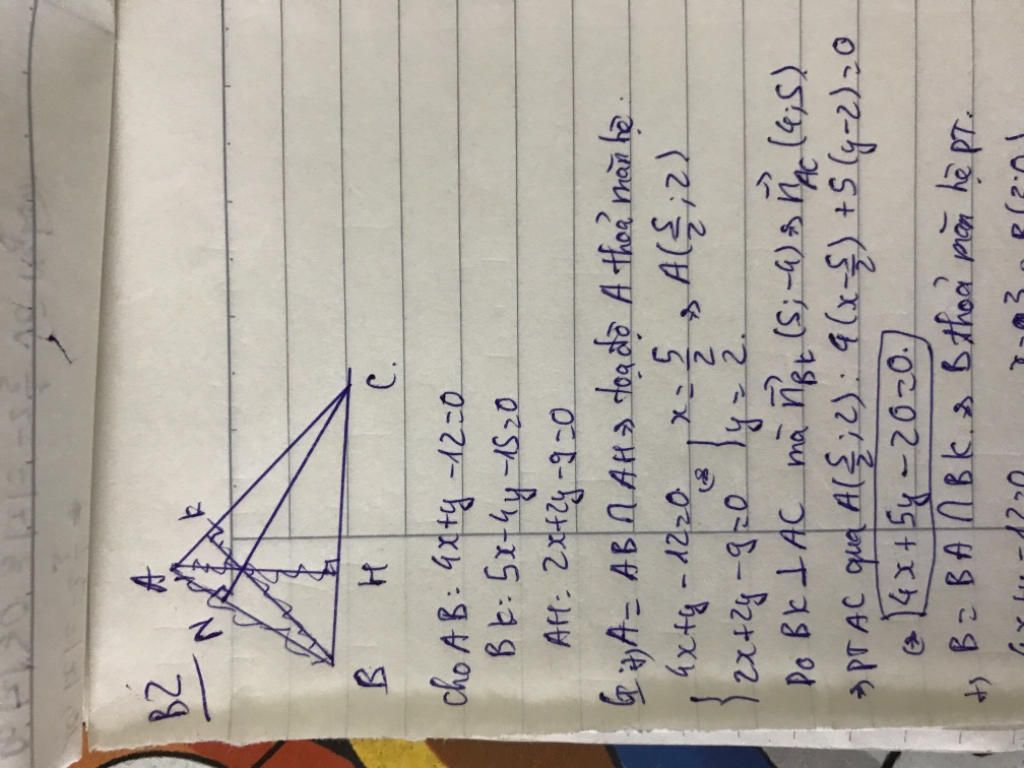 B2
A
N
K
B
H
C.
Cho AB: 4x+y-12=0
BK: 5x-4y-15=0
AH: 2x+2y-9=0
G: +) A = AB ∩ AH => toạ độ A thoả mãn hệ.
{ 4x+y-12=0 <=> { x = 5/2 => A(5/2; 2)
{ 2x+2y-9=0 { y = 2.
Do BK ⊥ AC mà n⃗BK (5; -4) => n⃗AC (4; 5)
=> PT AC qua A(5/2; 2): 4(x-5/2)+5(y-2)=0
<=> 4x+5y-20=0.
+) B = BA ∩ BK. => B thoả mãn hệ PT.
4x+y-12=0 x=3 B(3;0)